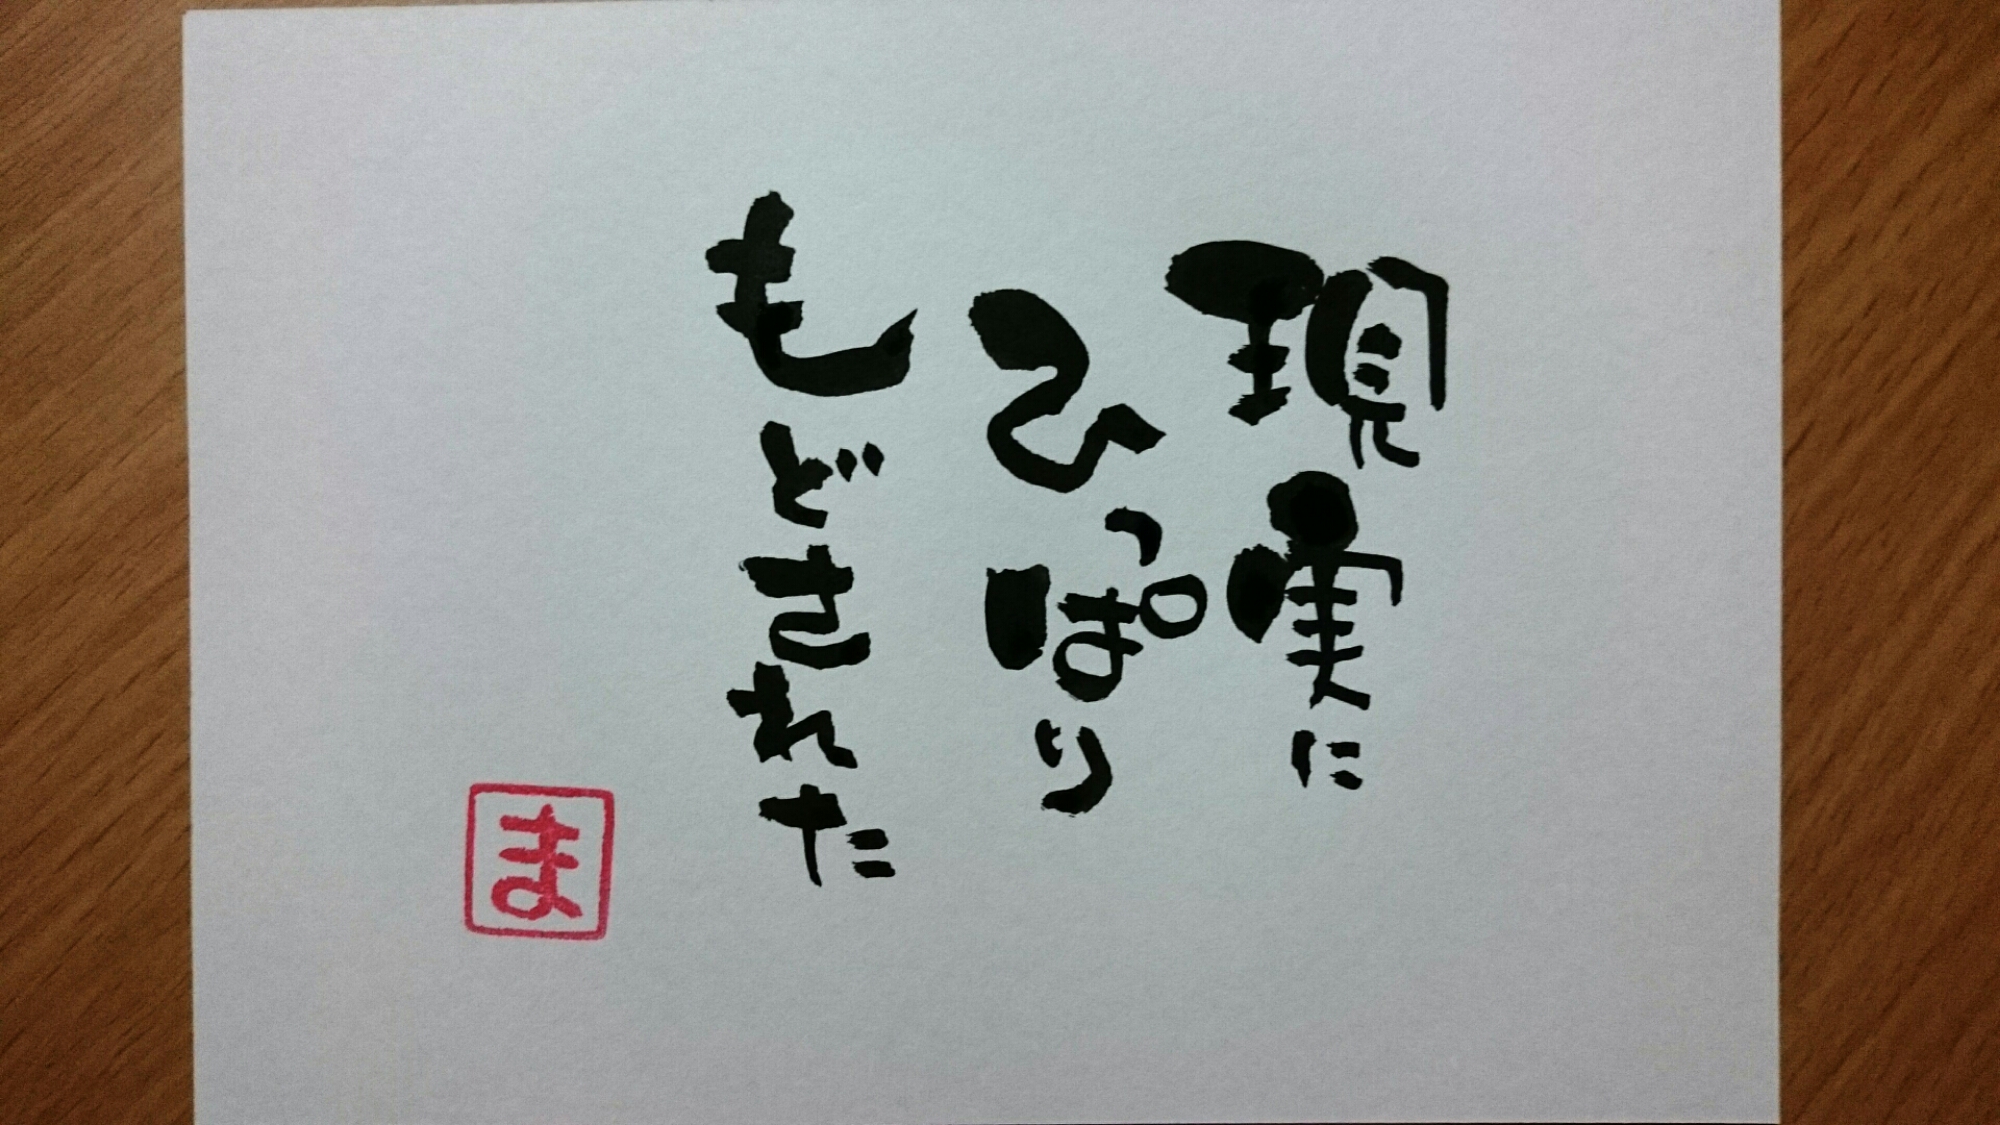 現実に
ひっぱり
もどされた
ま